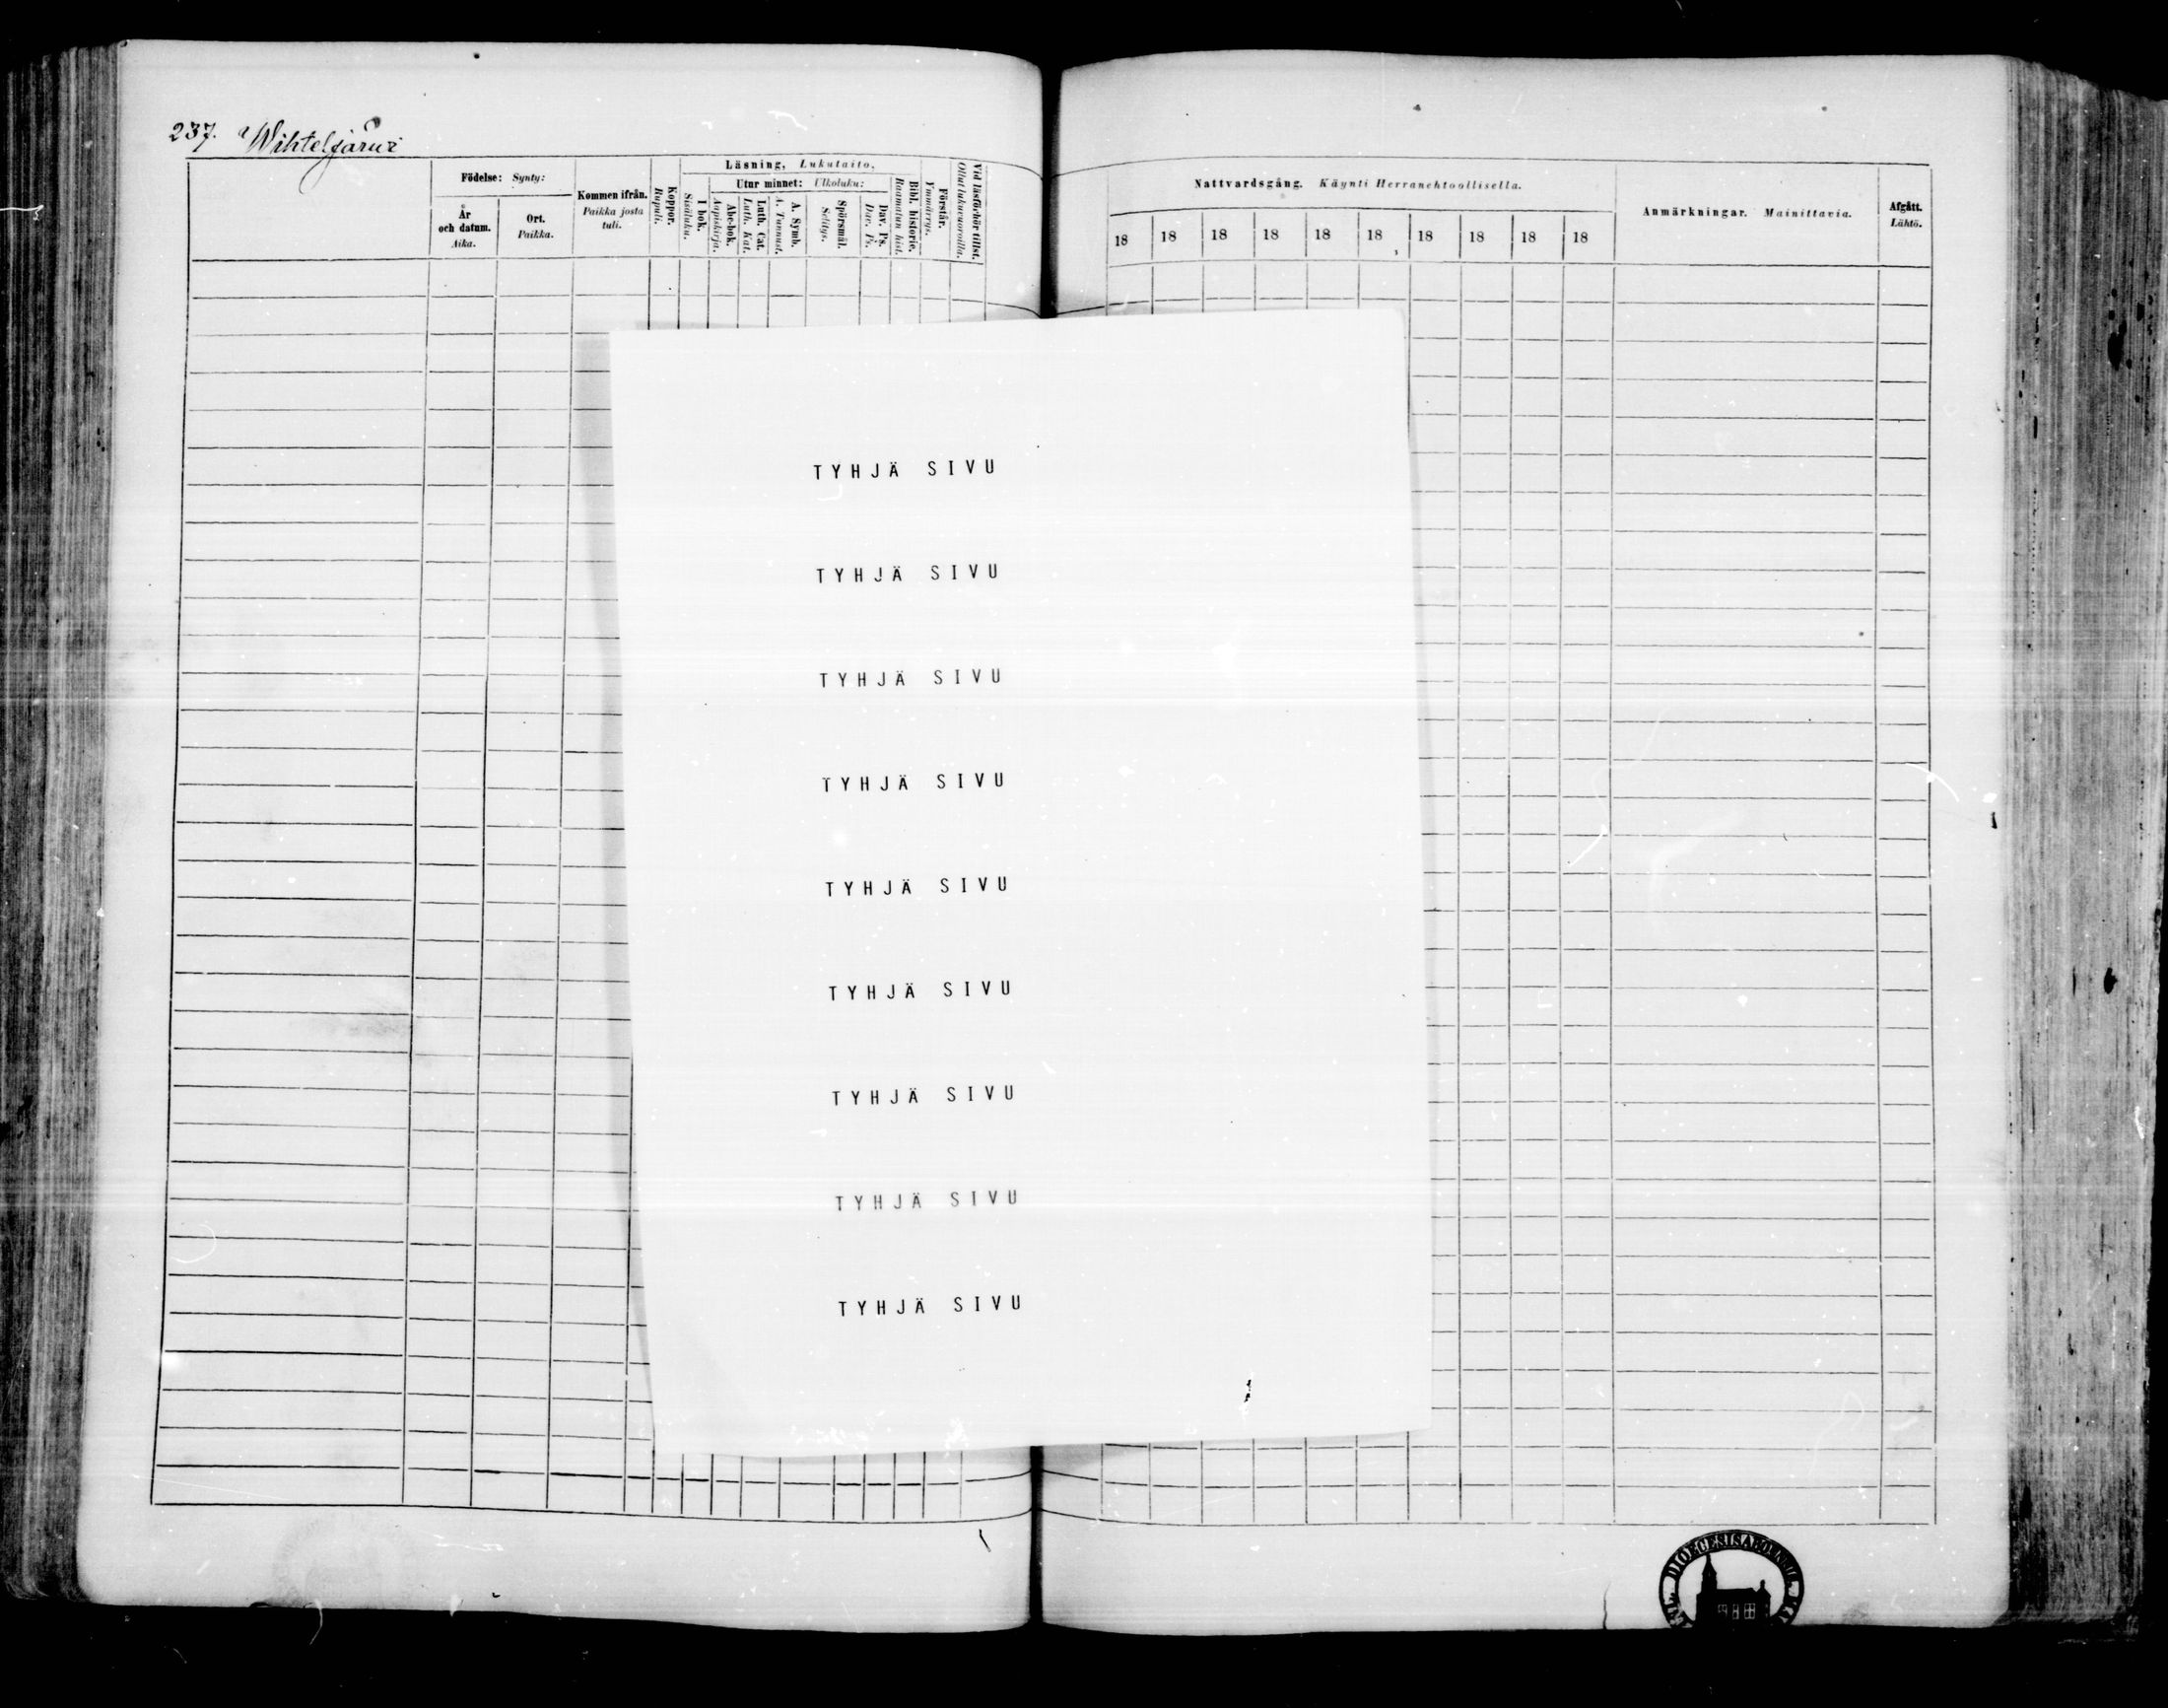 237. Wihteljärvi
Födelse: Synty:
År och datum. Aika.
Ort. Paikka.
Kommen ifrån. Paikka josta tuli.
Koppor. Rupuli.
Läsning, Lukutaito.
I bok. Sisäluku.
Utur minnet: Ulkoluku:
Abc-bok. Aapiskirja.
Luth. Cat. Luth. Kat.
A. Symb. A. Tunnust.
Spörsmål. Selitys.
Dav. Ps. Dav. Ps.
Bibl. historie. Raamatun hist.
Förstår. Ymmärrys.
Vid läsförhör tillst. Ollut lukuvuoroilla.
Nattvardsgång. Käynti Herranehtoollisella.
18 18 18 18 18 18 18 18 18 18
Anmärkningar. Mainittavia.
Afgått. Lähtö.
TYHJÄ SIVU
TYHJÄ SIVU
TYHJÄ SIVU
TYHJÄ SIVU
TYHJÄ SIVU
TYHJÄ SIVU
TYHJÄ SIVU
TYHJÄ SIVU
TYHJÄ SIVU